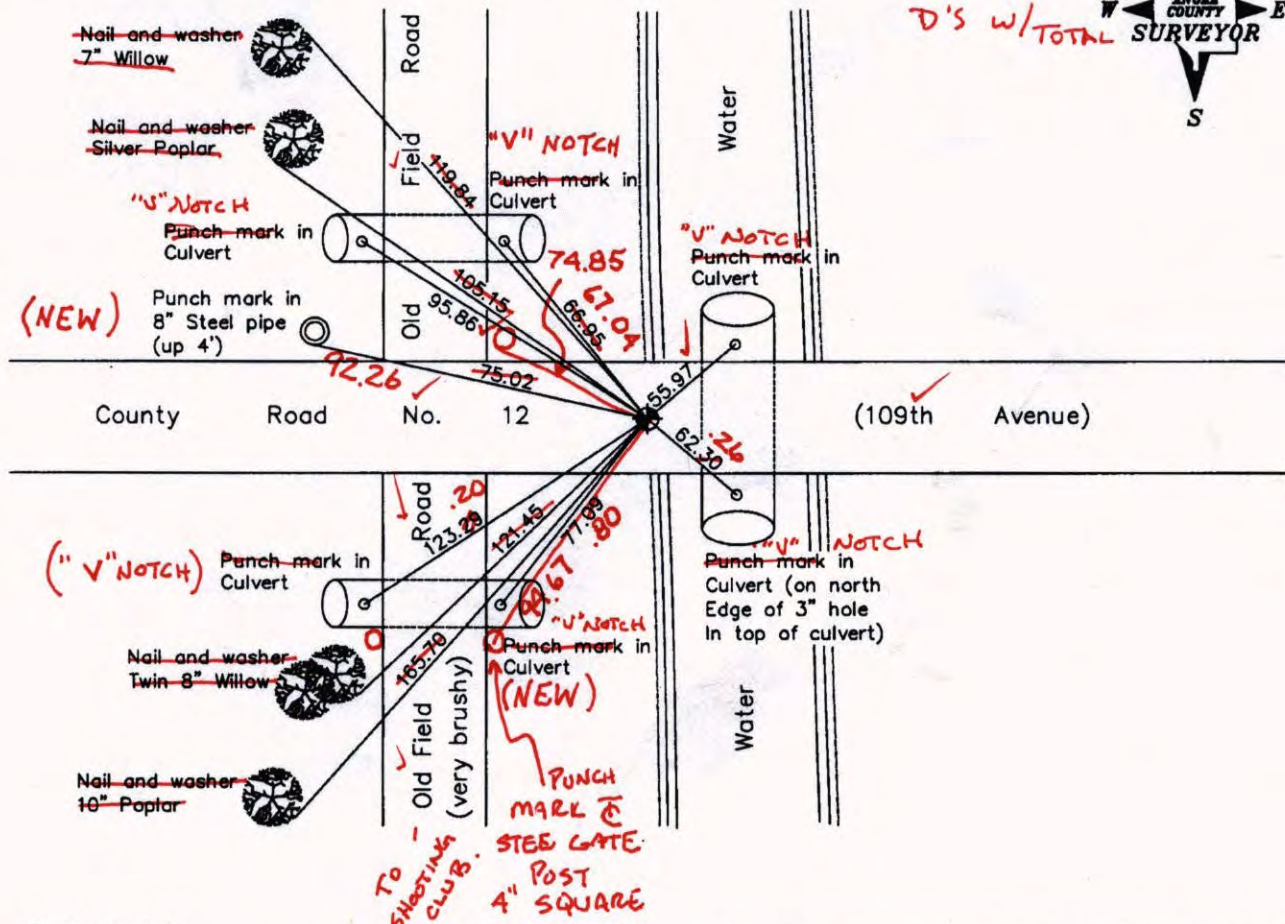 D'S W/ TOTAL
W
COUNTY
E
SURVEYOR
S
Nail and washer
7" Willow
Nail and washer
Silver Poplar
"V" NOTCH
Punch mark in
Culvert
(NEW)
Punch mark in
8" Steel pipe
(up 4')
Road
Field
Old
"V" NOTCH
Punch mark in
Culvert
Water
"V" NOTCH
Punch mark in
Culvert
119.84
74.85
105.15
95.86
66.95
67.04
92.26
75.02
55.97
62.30
.26
County Road No. 12 (109th Avenue)
Road
.20
123.29
121.45
77.09
.80
165.70
("V" NOTCH)
Punch mark in
Culvert
Nail and washer
Twin 8" Willow
Nail and washer
10" Poplar
Old Field
(very brushy)
"V" NOTCH
Punch mark in
Culvert
(NEW)
PUNCH
MARK
STEE GATE
POST
4" SQUARE
TO
SHOOTING
CLUB.
"V" NOTCH
Punch mark in
Culvert (on north
Edge of 3" hole
In top of culvert)
Water